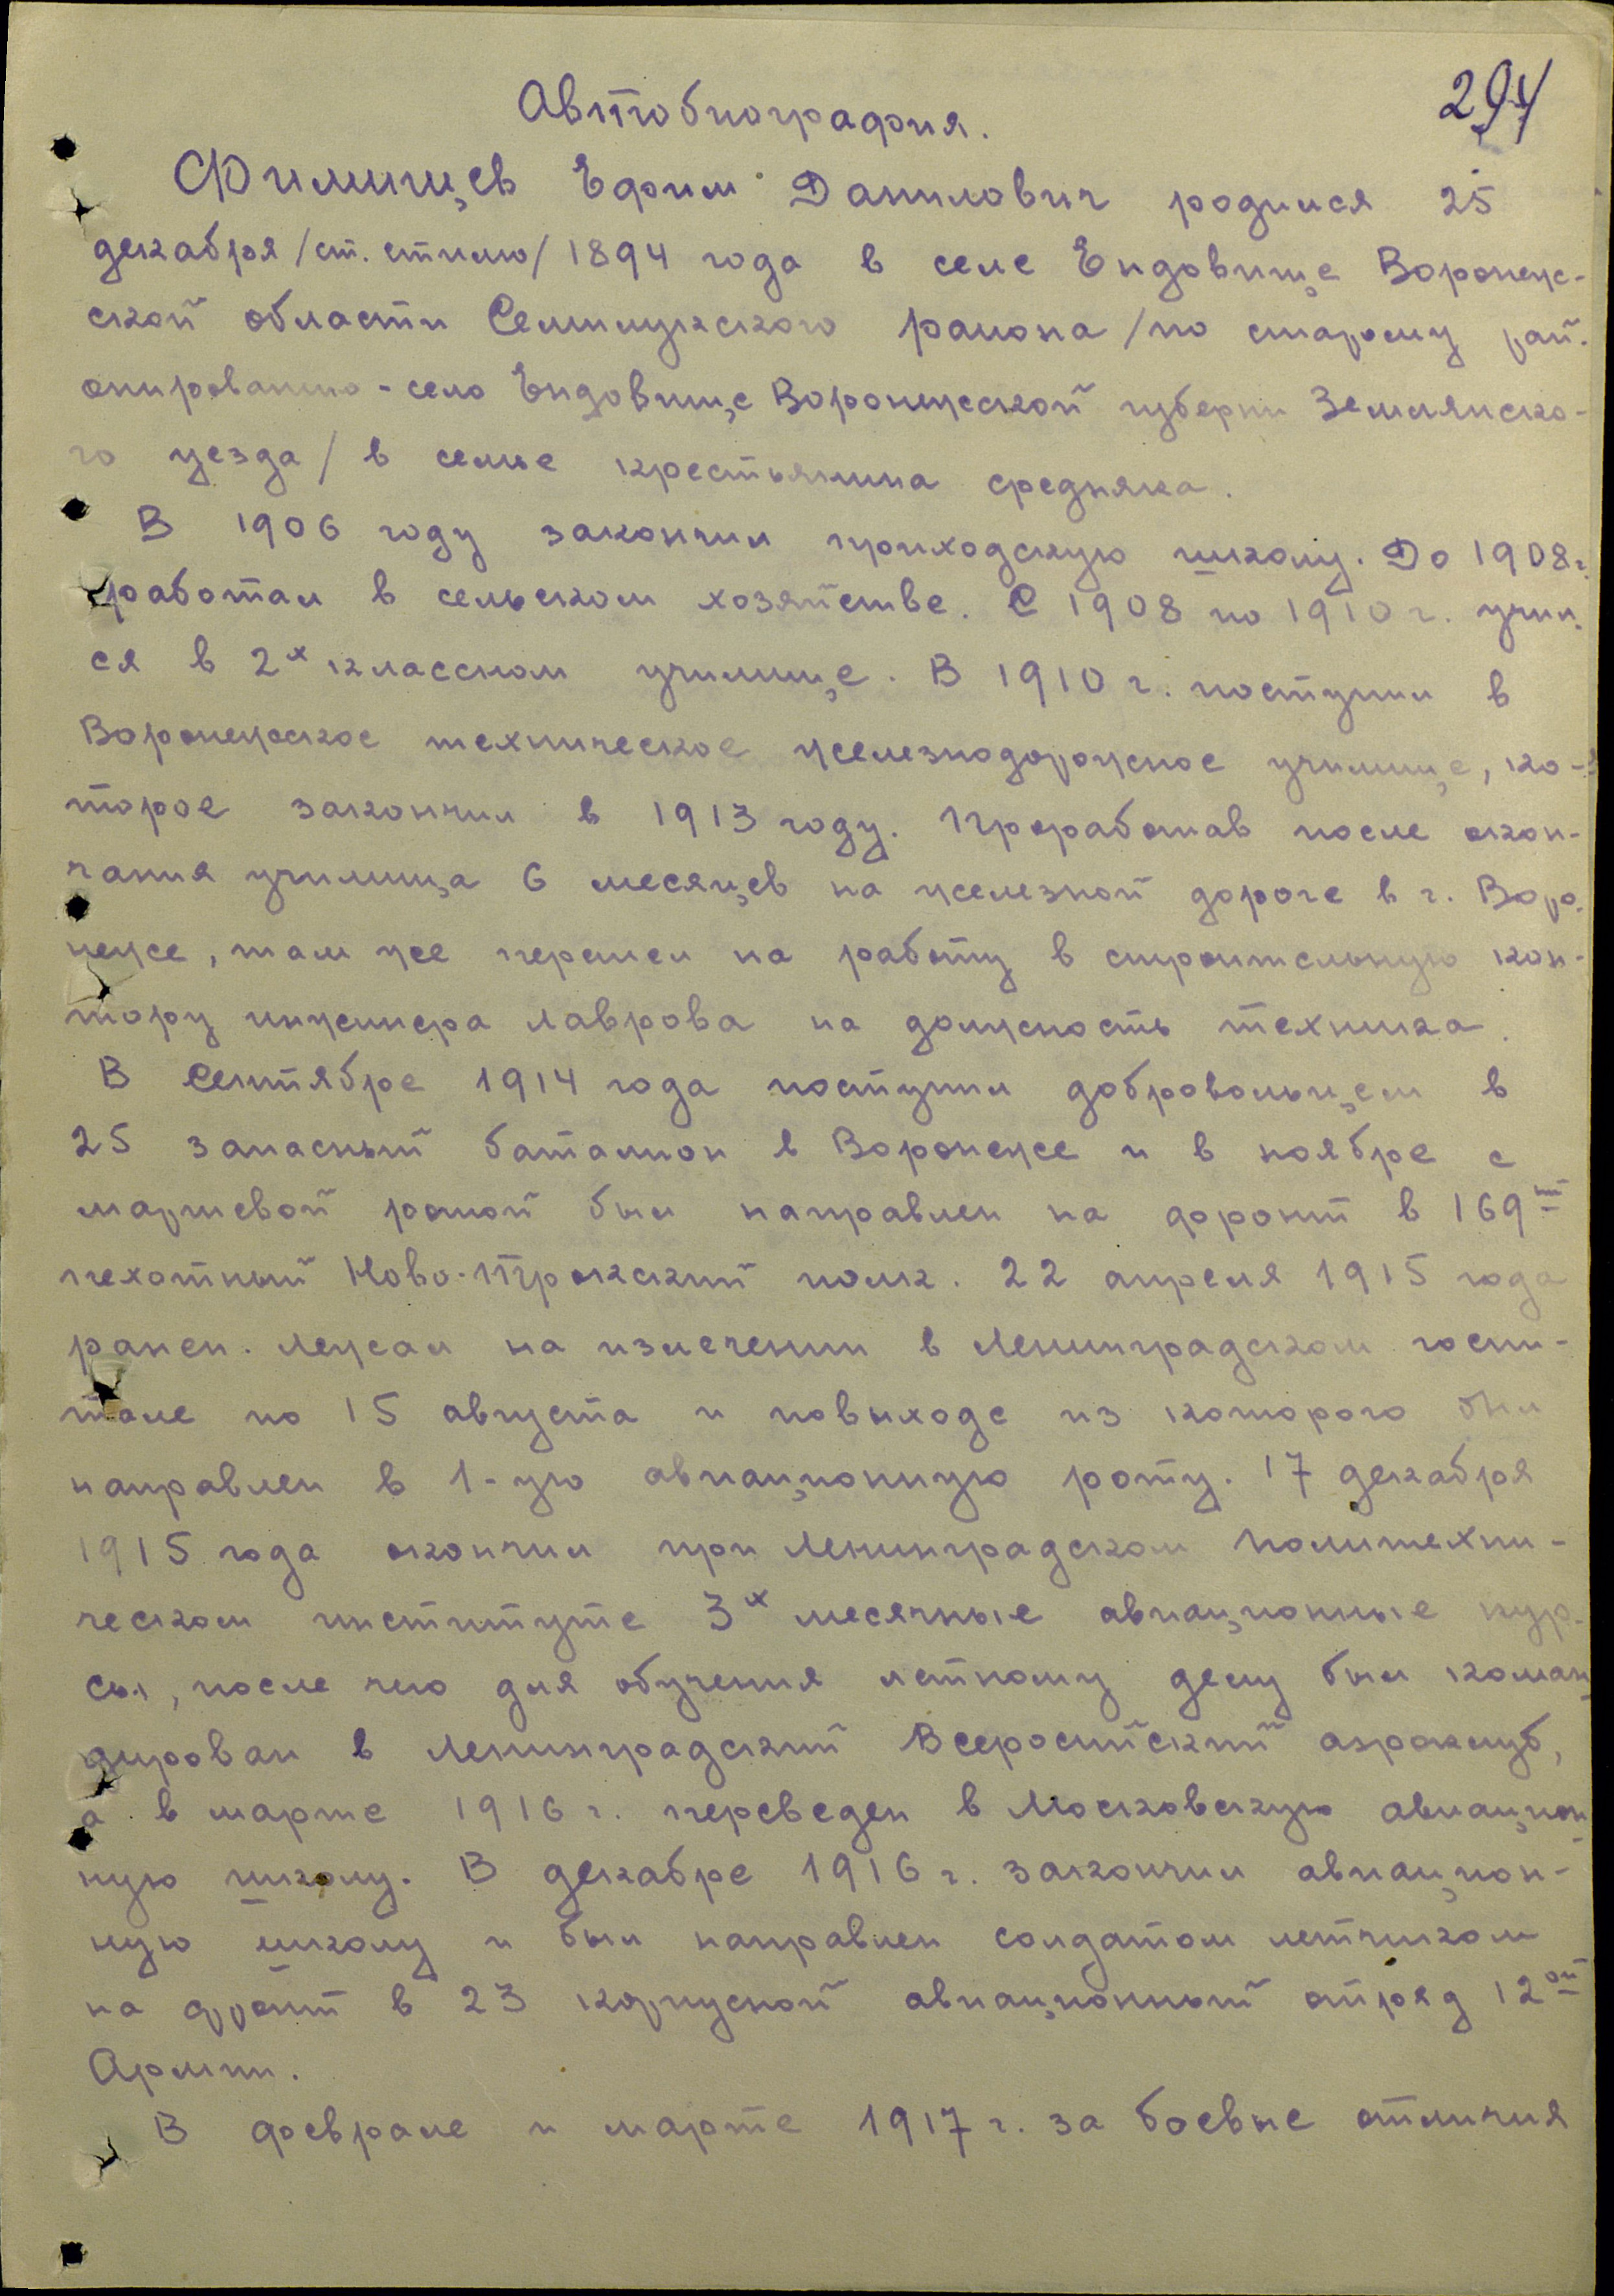 Автобиография.
294
Филищев Ефим Данилович родился 25
декабря /ст. стилю/ 1894 года в селе Ендовище Воронеж-
ской области Семилукского раиона /по старому рай-
онированию - село Ендовище Воронежской губерни Землянско-
го уезда/ в семье крестьянина средняка.
В 1906 году закончил приходскую школу. До 1908 г.
работал в сельском хозяйстве. С 1908 по 1910 г. учил-
ся в 2х классном училище. В 1910 г. поступил в
Воронежское техническое железнодорожное училище, ко-
торое закончил в 1913 году. Проработав после окон-
чания училища 6 месяцев на железной дороге в г. Воро-
неже, там же перешел на работу в строительную кон-
тору инженера Лаврова на должность техника.
В Сентябре 1914 года поступил добровольцем в
25 запасный баталион в Воронеже и в ноябре с
маршевой ротой был направлен на фронт в 169ый
пехотный Ново-Трокский полк. 22 апреля 1915 года
ранен. Лежал на излечении в Ленинградском госпи-
тале по 15 августа и повыходе из которого был
направлен в 1-ую авиационную роту. 17 декабря
1915 года окончил при Ленинградском Политехни-
ческом институте 3х месячные авиационные кур-
сы, после чего для обучения летному делу был коман
дирован в Ленинградский Всеросийский аэроклуб,
а в марте 1916 г. переведен в Московскую авиацион
ную школу. В декабре 1916 г. закончил авиацион-
ную школу и был направлен солдатом летчиком
на фронт в 23 корпусной авиационный отряд 12ой
Армии.
В феврале и марте 1917 г. за боевые отличия